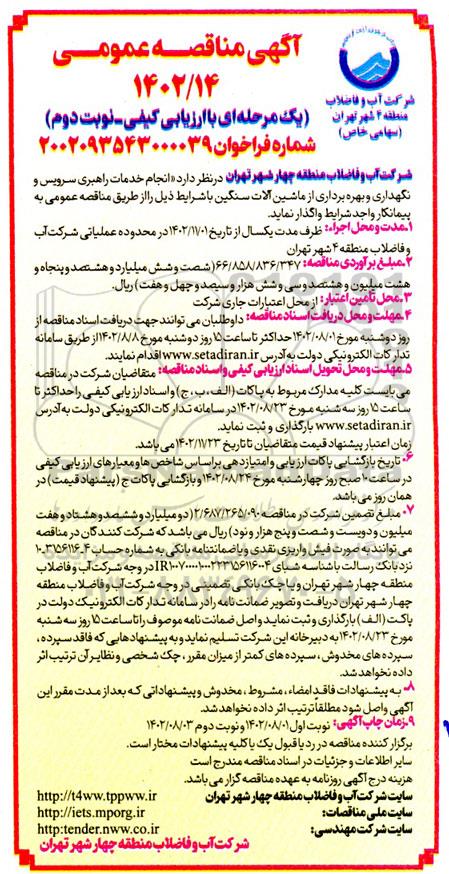 آگهی مناقصه عمومی
۱۴۰۲/۱۴
(یک مرحله‌ای با ارزیابی کیفی-نوبت دوم)
شماره فراخوان ۲۰۰۲۰۹۳۵۴۳۰۰۰۰۳۹
شرکت آب و فاضلاب
منطقه ۴ شهر تهران
(سهامی خاص)
شرکت آب و فاضلاب منطقه چهار شهر تهران درنظر دارد «انجام خدمات راهبری سرویس و
نگهداری و بهره برداری از ماشین آلات سنگین با شرایط ذیل را از طریق مناقصه عمومی به
پیمانکار واجد شرایط واگذار نماید.
۱.مدت و محل اجراء: ظرف مدت یکسال از تاریخ ۱۴۰۲/۱۱/۰۱ در محدوده عملیاتی شرکت آب
و فاضلاب منطقه ۴ شهر تهران
۲.مبلغ برآوردی مناقصه: ۶۶/۸۵۸/۸۳۶/۳۴۷ (شصت و شش میلیارد و هشتصد و پنجاه و
هشت میلیون و هشتصد و سی و شش هزار و سیصد و چهل و هفت) ریال.
۳.محل تأمین اعتبار: از محل اعتبارات جاری شرکت
۴.مهلت و محل دریافت اسناد مناقصه: داوطلبان می توانند جهت دریافت اسناد مناقصه از
روز دوشنبه مورخ ۱۴۰۲/۰۸/۰۱ حداکثر تا ساعت ۱۵ روز دوشنبه مورخ ۱۴۰۲/۸/۸ از طریق سامانه
تدارکات الکترونیکی دولت به آدرس www.setadiran.ir اقدام نمایند.
۵.مهلت و محل تحویل اسناد ارزیابی کیفی و اسناد مناقصه: متقاضیان شرکت در مناقصه
می بایست کلیه مدارک مربوط به پاکات (الف، ب، ج) و اسناد ارزیابی کیفی را حداکثر تا
ساعت ۱۵ روز سه شنبه مورخ ۱۴۰۲/۰۸/۲۳ در سامانه تدارکات الکترونیکی دولت به آدرس
www.setadiran.ir بارگذاری و ثبت نماید.
زمان اعتبار پیشنهاد قیمت متقاضیان تا تاریخ ۱۴۰۲/۱۱/۲۳ می باشد.
۶- تاریخ بازگشایی پاکات ارزیابی و امتیازدهی براساس شاخص ها و معیارهای ارزیابی کیفی
در ساعت ۱۰ صبح روز چهارشنبه مورخ ۱۴۰۲/۰۸/۲۴ و بازگشایی پاکات ج (پیشنهاد قیمت) در
همان روز می باشد.
۷- مبلغ تضمین شرکت در مناقصه ۲/۶۸۷/۲۶۵/۰۹۰ (دو میلیارد و ششصد و هشتاد و هفت
میلیون و دویست و شصت و پنج هزار و نود) ریال می باشد که شرکت کنندگان در مناقصه
می توانند به صورت فیش واریزی نقدی و یا ضمانتنامه بانکی به شماره حساب ۱۰۳۱۵۶۱۱۶.۴
نزد بانک رسالت با شناسه شبای در وجه شرکت آب و فاضلاب
منطقه چهار شهر تهران و یا چک بانکی تضمینی در وجه شرکت آب و فاضلاب منطقه
چهار شهر تهران دریافت و تصویر ضمانت نامه را در سامانه تدارکات الکترونیک دولت در
پاکت (الف) بارگذاری و ثبت نماید و اصل ضمانت نامه موصوف را تا ساعت ۱۵ روز سه شنبه
مورخ ۱۴۰۲/۰۸/۲۳ به دبیرخانه این شرکت تسلیم نماید و به پیشنهادهایی که فاقد سپرده،
سپرده های مخدوش، سپرده های کمتر از میزان مقرر، چک شخصی و نظایر آن ترتیب اثر
داده نخواهد شد.
۸- به پیشنهادات فاقد امضاء، مشروط، مخدوش و پیشنهاداتی که بعد از مدت مقرر این
آگهی واصل شود مطلقاً ترتیب اثر داده نخواهد شد.
۹.زمان چاپ آگهی: نوبت اول ۱۴۰۲/۰۸/۰۱ و نوبت دوم ۱۴۰۲/۰۸/۰۳
برگزار کننده مناقصه در رد یا قبول یک یا کلیه پیشنهادات مختار است.
سایر اطلاعات و جزئیات در اسناد مناقصه مندرج است
هزینه درج آگهی روزنامه به عهده مناقصه گزار می باشد.
سایت شرکت آب و فاضلاب منطقه چهار شهر تهران http://t4ww.tppww.ir
سایت ملی مناقصات: http://iets.mporg.ir
سایت شرکت مهندسی: http:tender.nww.co.ir
شرکت آب و فاضلاب منطقه چهار شهر تهران